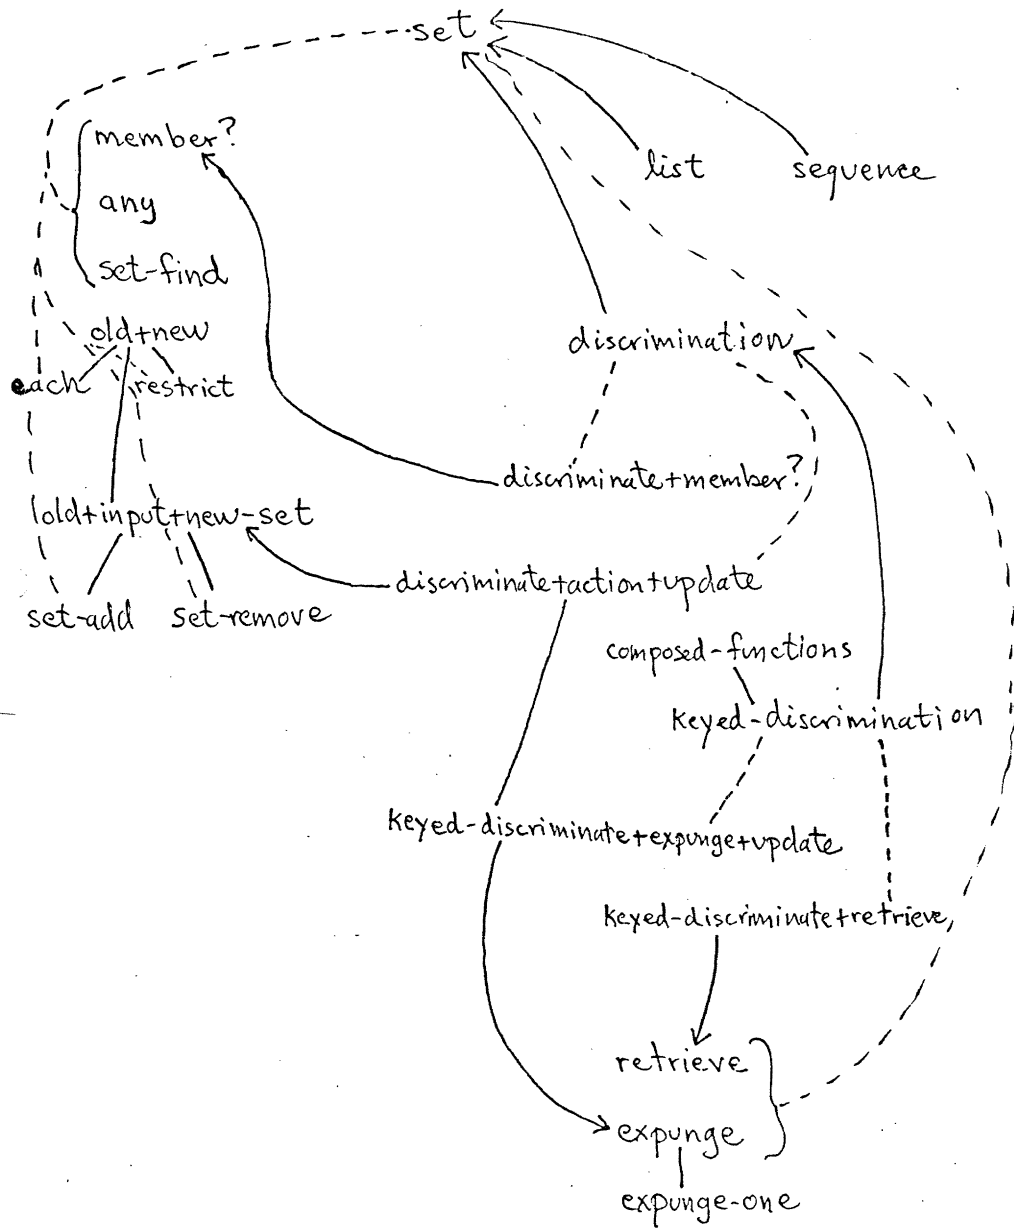 set
member?
list
sequence
any
set-find
old+new
discrimination
each
restrict
discriminate+member?
old+input+new-set
discriminate+action+update
set-add
set-remove
composed-functions
keyed-discrimination
keyed-discriminate+expunge+update
keyed-discriminate+retrieve
retrieve
expunge
expunge-one